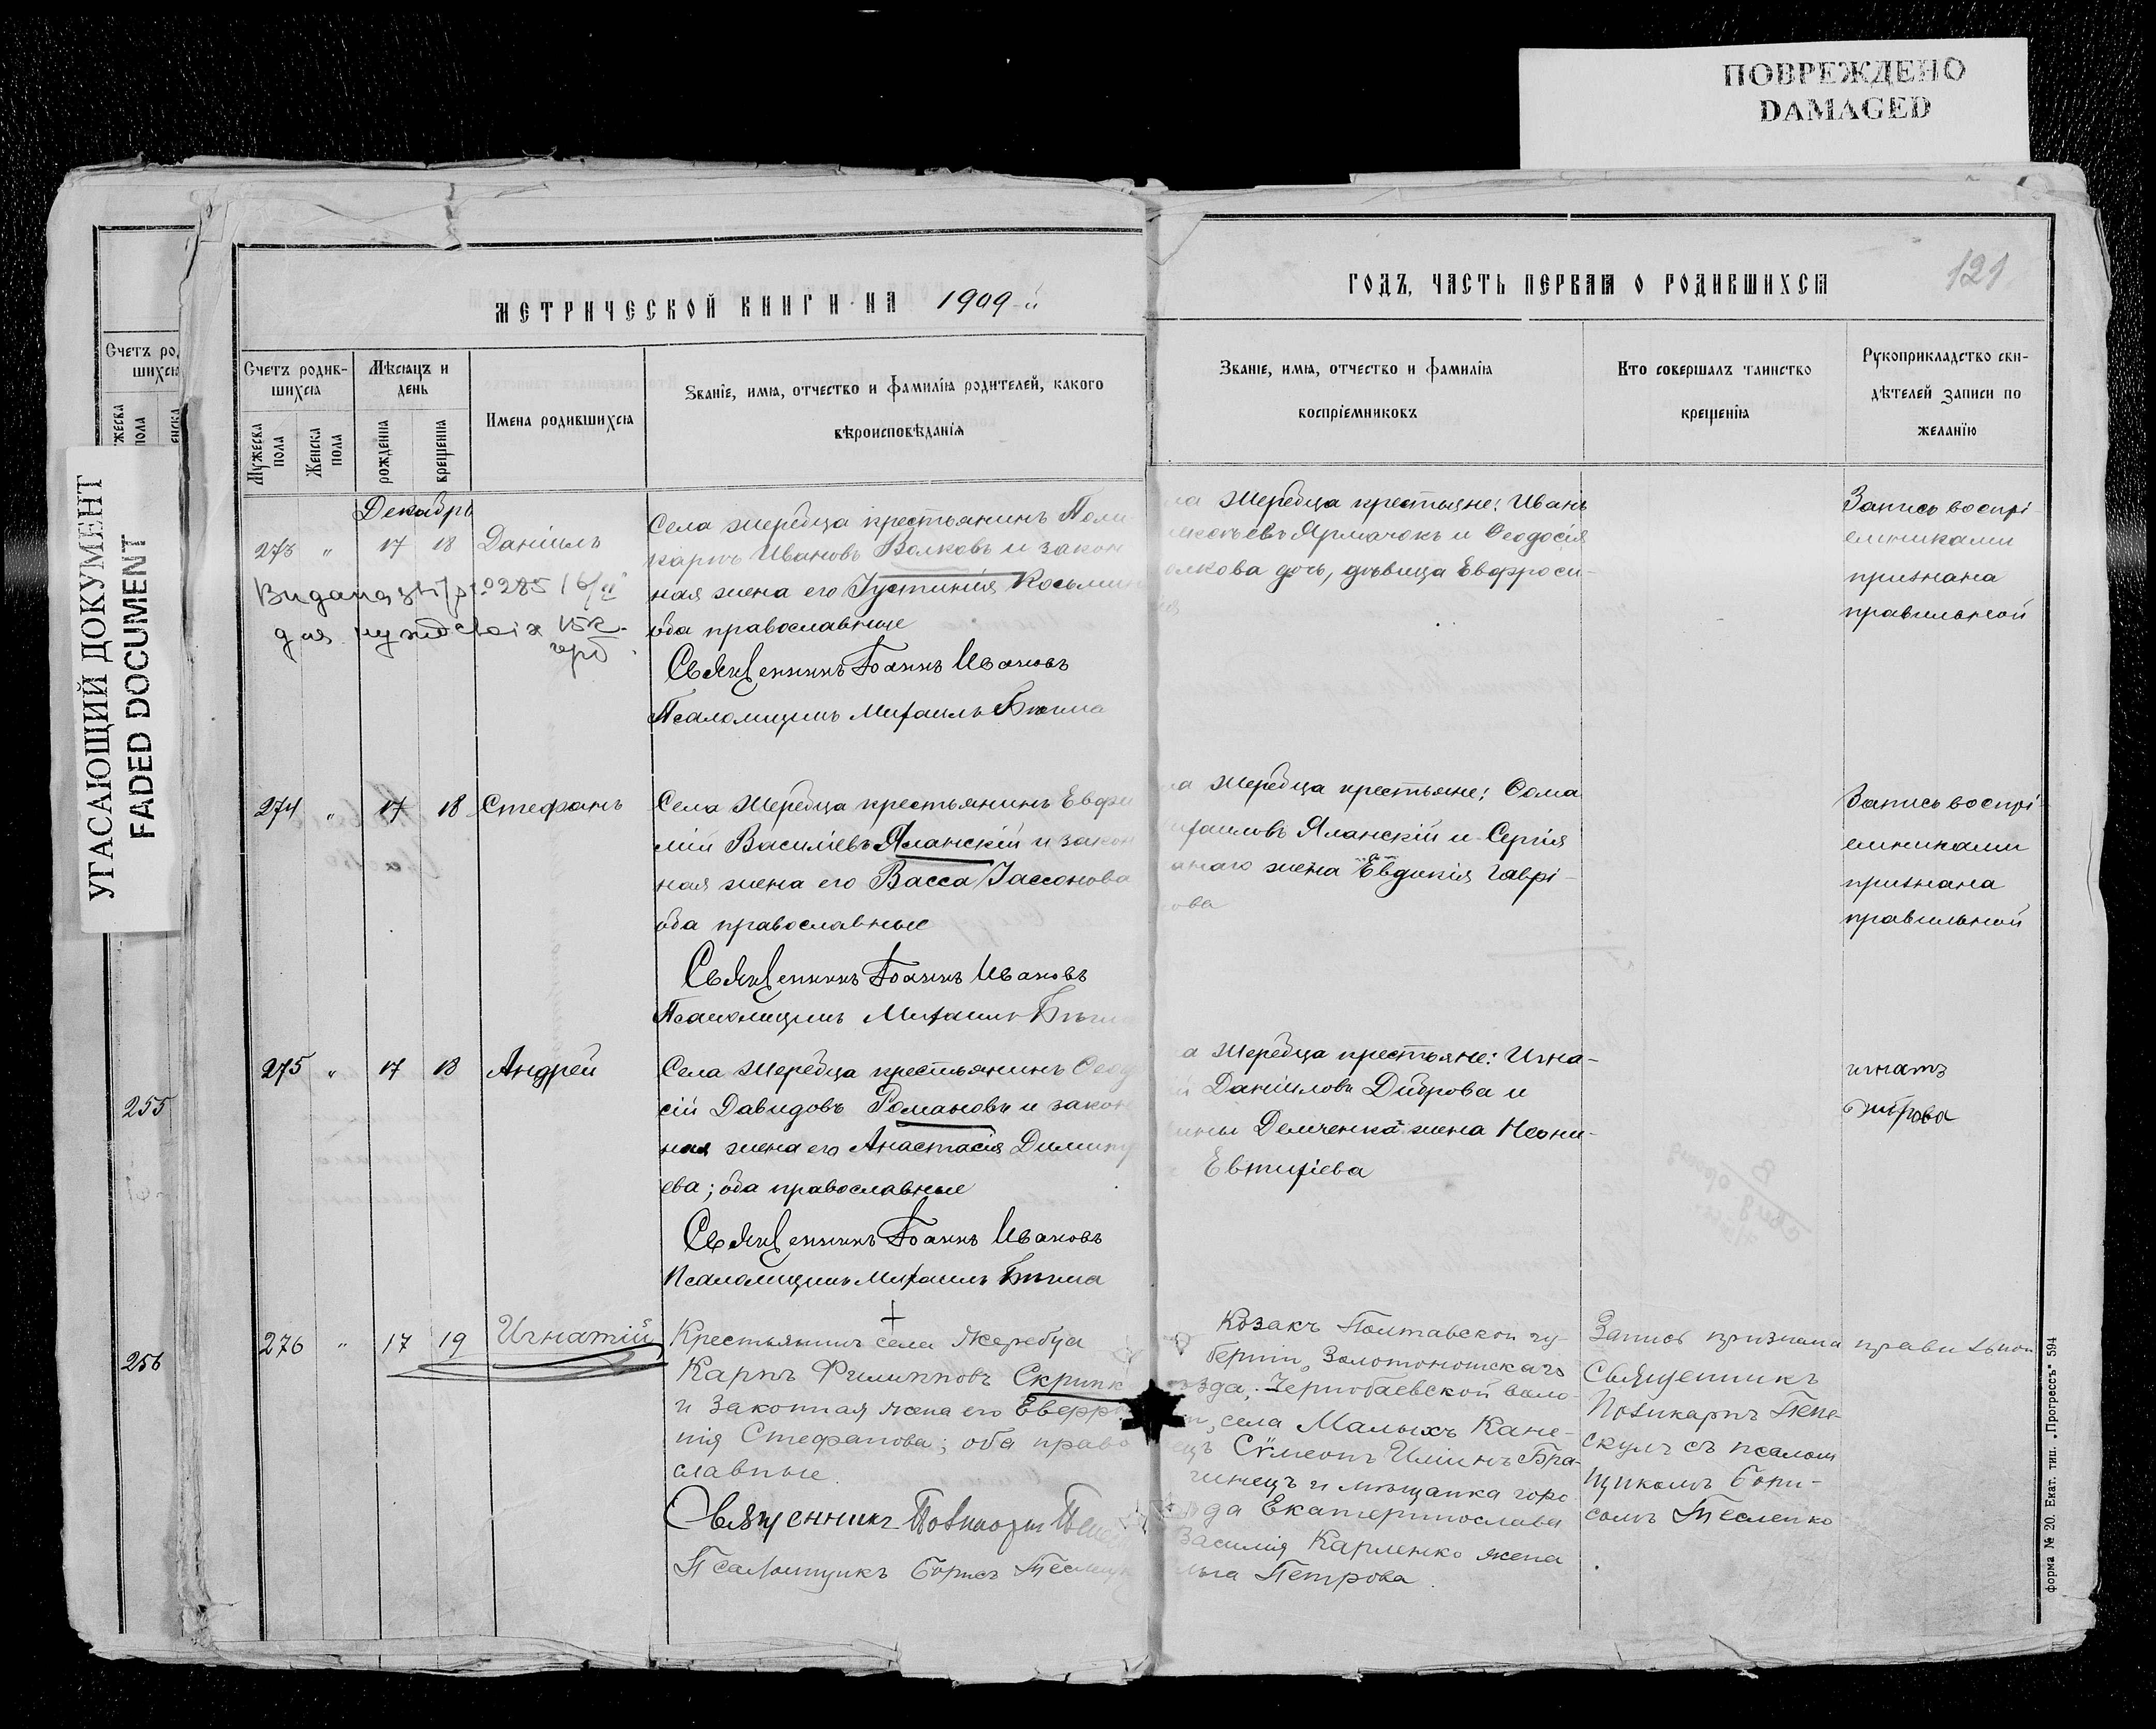 ПОВРЕЖДЕНО
DAMAGED
УГАСАЮЩИЙ ДОКУМЕНТ
FADED DOCUMENT
МЕТРИЧЕСКОЙ КНИГИ НА 1909-й
ГОДЪ, ЧАСТЬ ПЕРВАЯ О РОДИВШИХСЯ
121
Счетъ родив-
шихся
Мужеска пола
Женска пола
Мѣсяцъ и
день
рожденія
крещенія
Имена родившихся
Званіе, имя, отчество и фамилія родителей, какого
вѣроисповѣданія
Званіе, имя, отчество и фамилія
воспріемниковъ
Кто совершалъ таинство
крещенія
Рукоприкладство сви-
дѣтелей записи по
желанію
Декабрь
273 " 17 18 Даніилъ
Села Жеребца крестьянинъ Поли
карпъ Ивановъ Волковъ и закон
ная жена его Іустинія Косьмин
оба православные
Священникъ Іоаннъ Ивановъ
Псаломщикъ Михаилъ
Жеребца крестьяне: Иванъ
Ярмачокъ и Ѳеодосія
дочь, дѣвица Евфроси-
Запись воспрі
емниками
признана
правильной
274 " 17 18 Стефанъ
Села Жеребца крестьянинъ Евфи
мій Василіевъ Яланскій и закон
ная жена его Васса Іассонова
оба православные
Священникъ Іоаннъ Ивановъ
Псаломщикъ Михаилъ
Жеребца крестьяне: Ѳома
Яланскій и Сергія
жена Евдокія Гаврі-
ова
Запись воспрі
емниками
признана
правильной
255
275 " 17 18 Андрей
Села Жеребца крестьянинъ Ѳеод
сій Давидовъ Романовъ и закон
ная жена его Анастасія Димитр
ева; оба православные
Священникъ Іоаннъ Ивановъ
Псаломщикъ Михаилъ
а Жеребца крестьяне: Игна-
Даніиловъ Диброва и
Демченка жена Неони-
Евтихіева
игнатъ
256
276 " 17 19 Игнатій
Крестьянинъ села Жеребца
Карпъ Филипповъ Скрипк
и законная жена его Евфро
нія Стефанова; оба право
славные.
Священникъ
Псаломщикъ Борисъ
Козакъ Полтавской гу-
берніи, Золотоношскаго
ѣзда, Чернобаевской воло-
села Малыхъ Кане-
Сѵмеонъ Бра-
гинецъ и мѣщанка горо
да Екатеринослава
Василія Карленко жена
Петрова.
Запись признана правильной
Священникъ
Поликарпъ Пепе-
скулъ съ псалом
щикомъ Бори-
сомъ Тесленко
форма № 20. Екат. тип. „Прогрессъ" 594